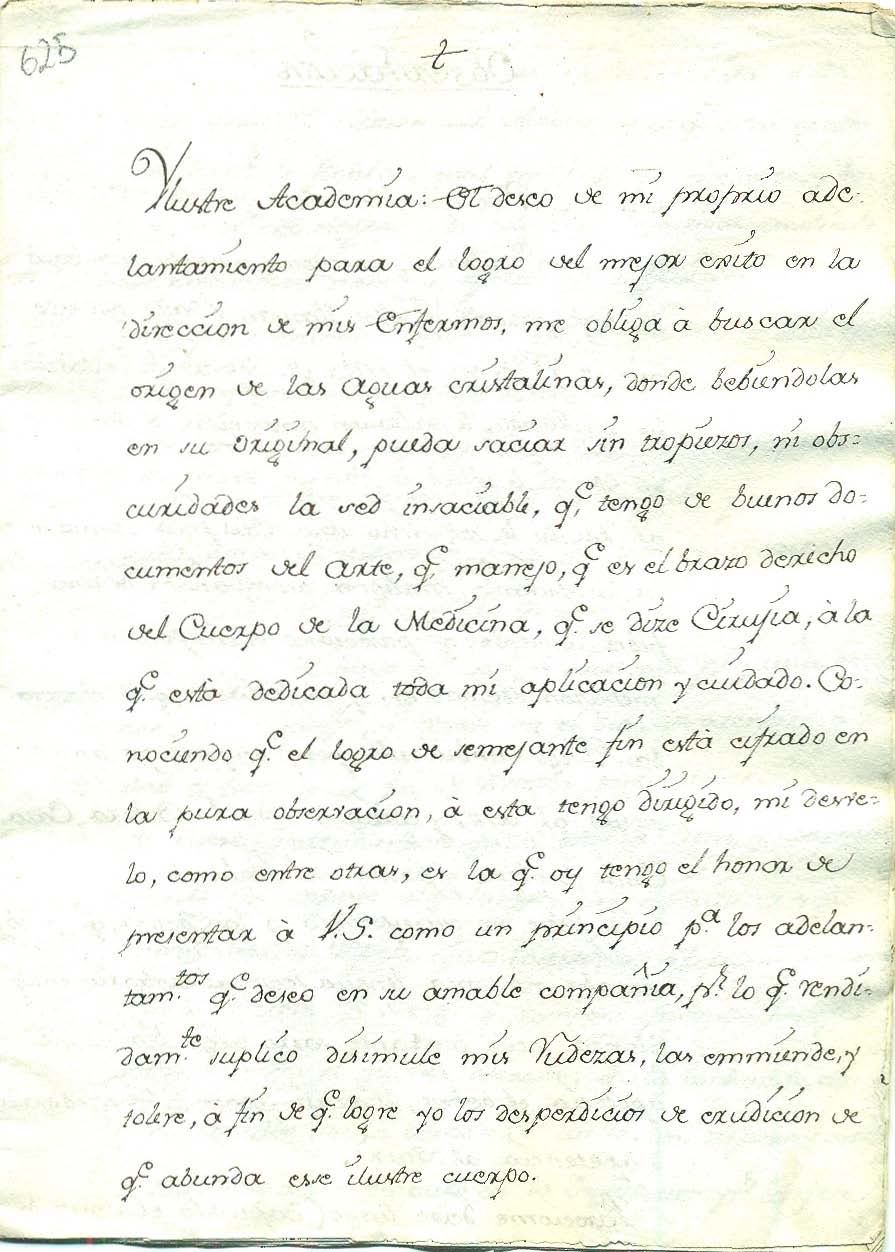 625
t
Ylustre Academia: El deseo de mi proprio ade-
lantamiento para el logro del mejor exito en la
direccion de mis Enfermos, me obliga à buscar el
origen de las aguas cristalinas, donde bebiendolas
en su original, pueda saciar sin tropiezos, ni obs=
curidades la sed insaciable, q.^e tengo de buenos do=
cumentos del arte, q.^e manejo, q.^e es el brazo dericho
del Cuerpo de la Medicina, q.^e se dize Cirusia, à la
q.^e està dedicada toda mi aplicacion y ciudado. Co-
nociendo q.^e el logro de semejante fin està cifrado en
la pura observacion, à esta tengo dirigido, mi desve=
lo, como entre otras, es la q.^e oy tengo el honor de
presentar à V.S. como un principio p.^a los adelan-
tam.^tos q.^e deseo en su amable compañia, p.^r lo q.^e rendi-
dam.^te suplico disimule mis Rudezas, las emmiende, y
tolere, à fin de q.^e logre yo los desperdicios de erudicion de
q.^e abunda esse ilustre cuerpo.